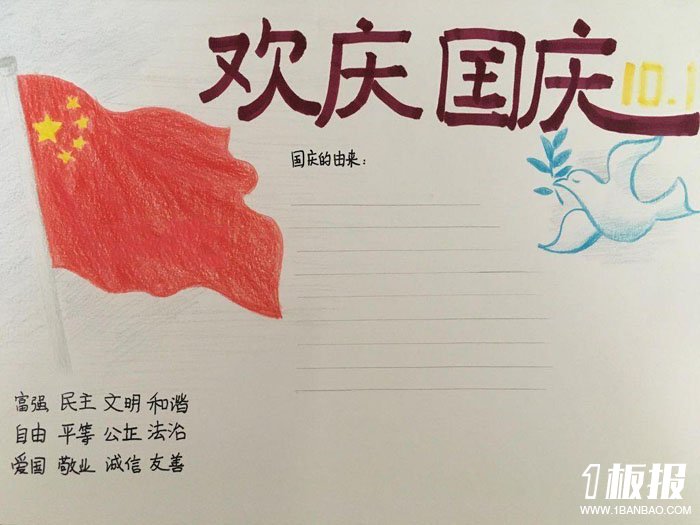 欢庆国庆 10.1
国庆的由来：
富强 民主 文明 和谐
自由 平等 公正 法治
爱国 敬业 诚信 友善
1板报
WWW.1BANBAO.COM